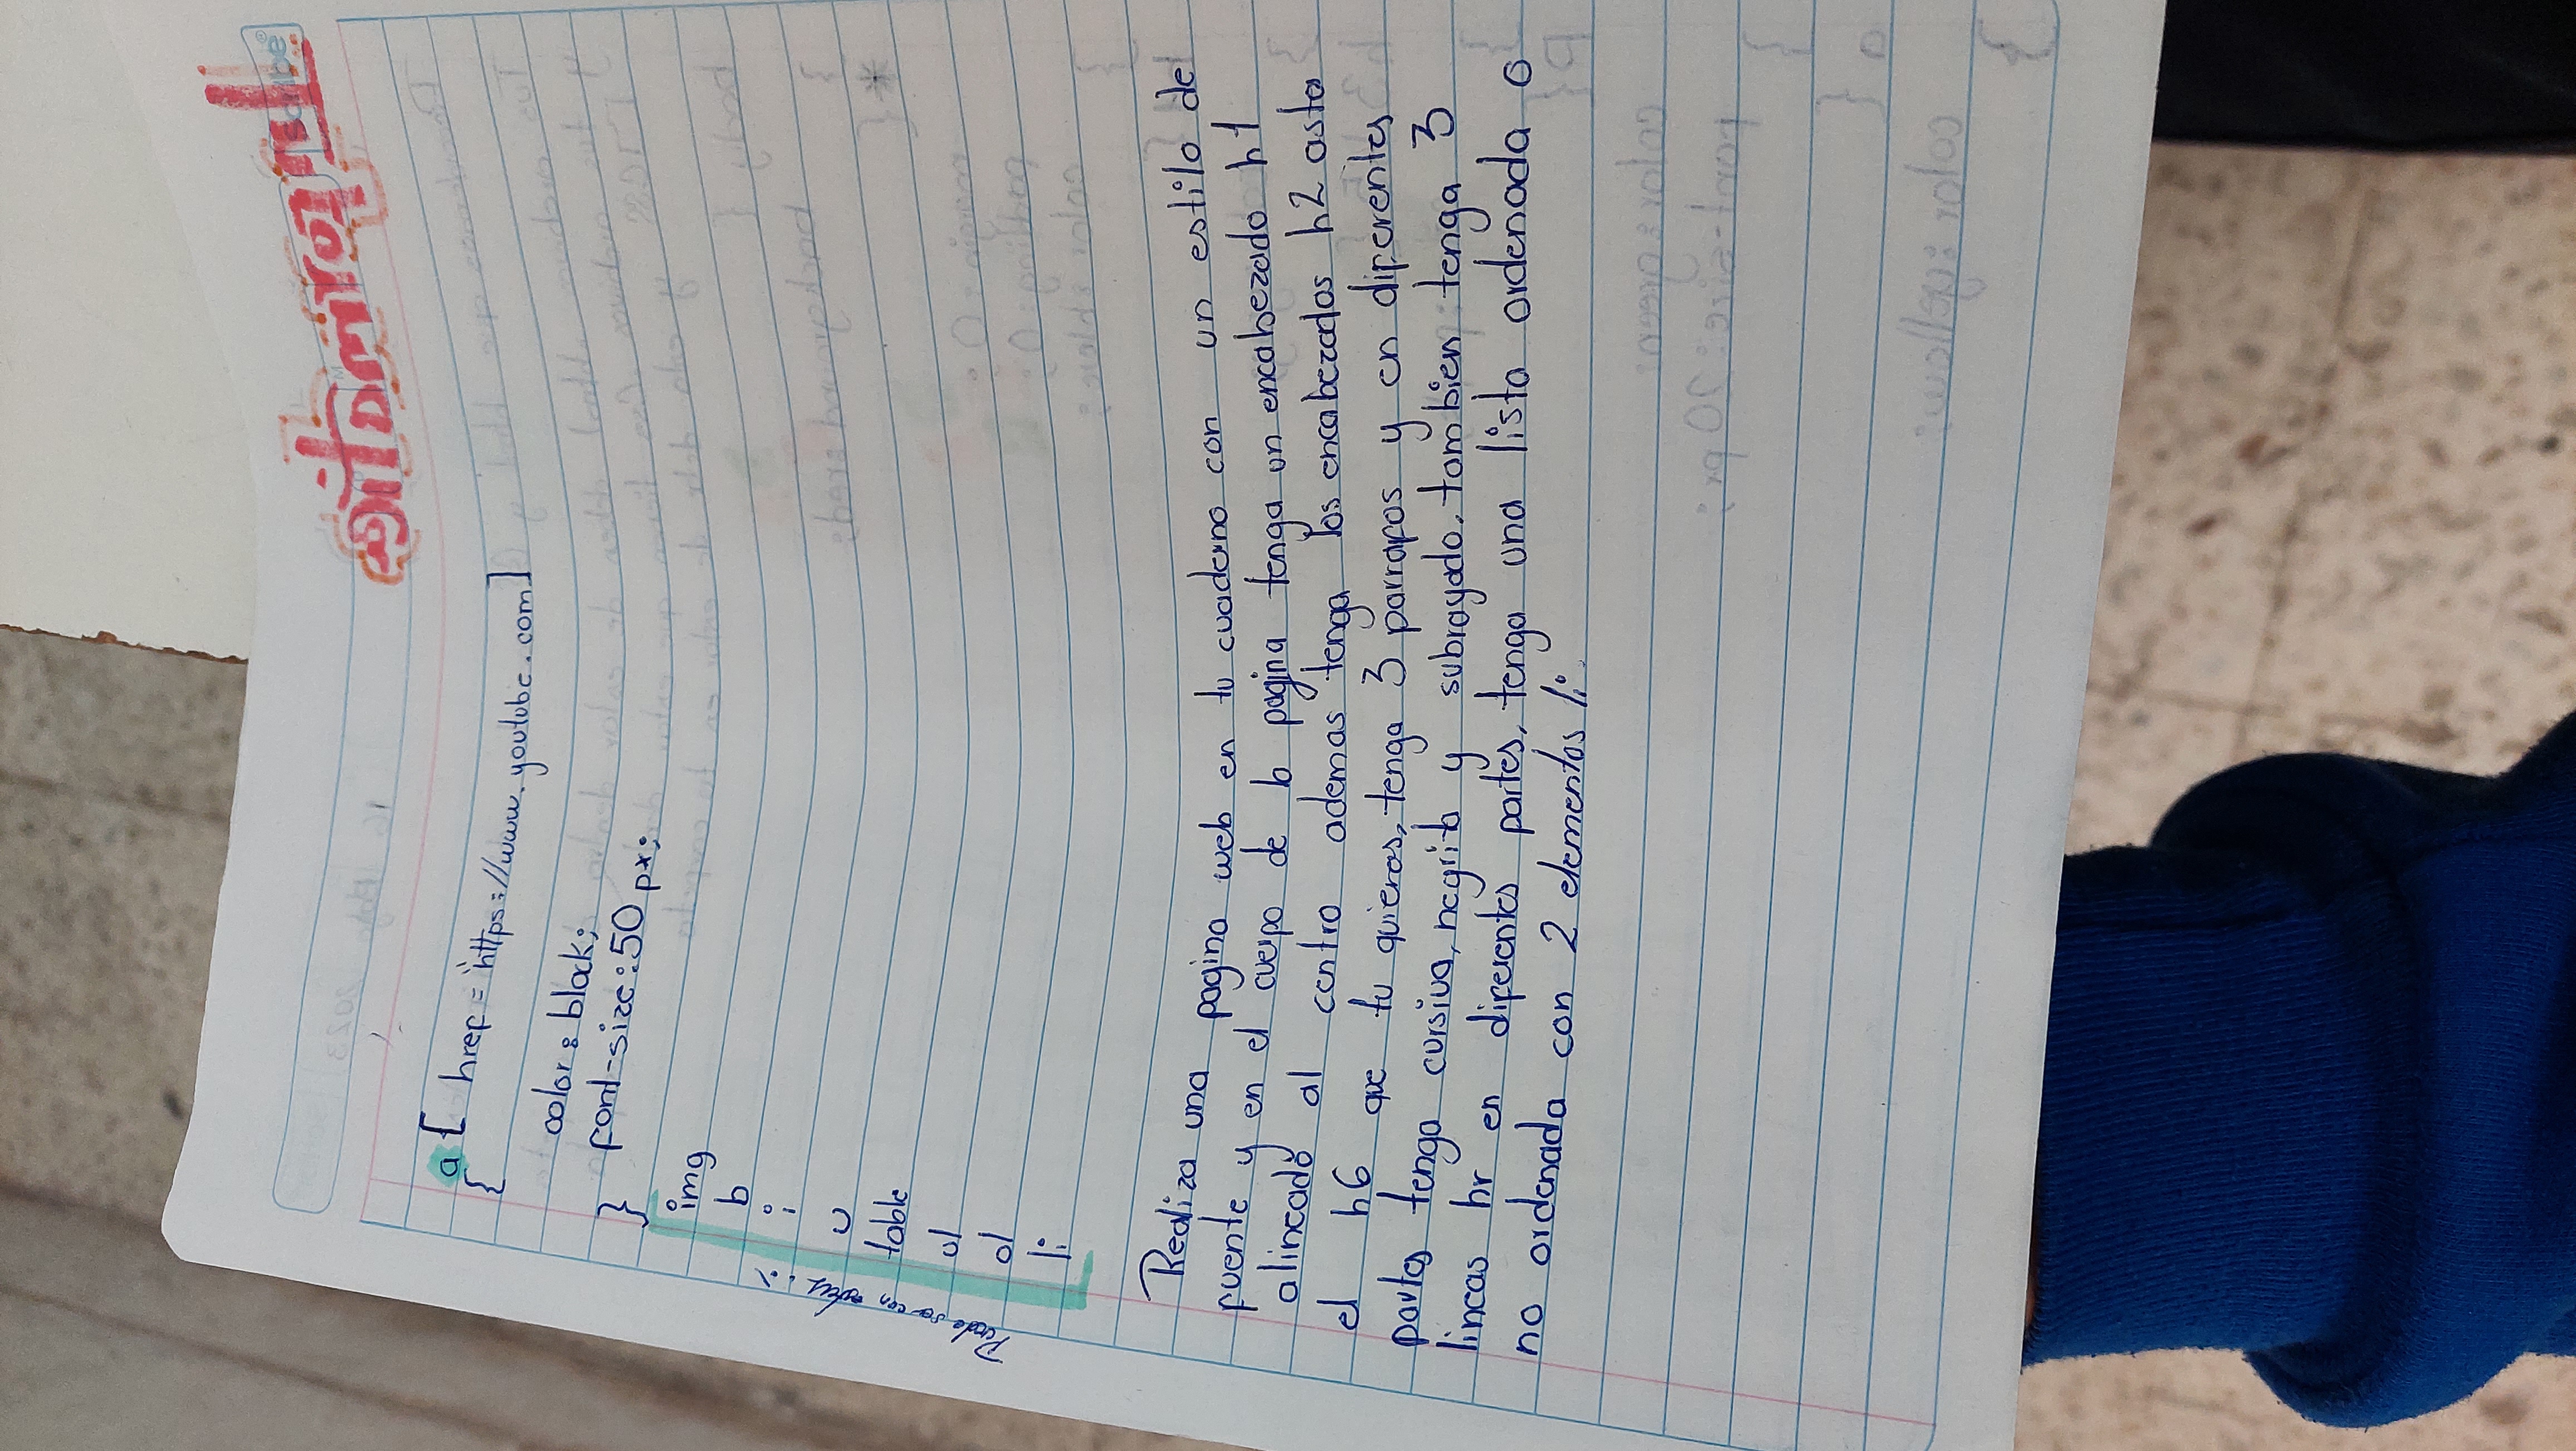 a[ href="https://www.youtube.com]
{
color: black;
font-size: 50 px;
}
img
b
i
u
table
ul
ol
li
Realiza una pagina web en tu cuaderno con un estilo de
fuente y en el cuerpo de la pagina tenga un encabezado h1
alineado al centro ademas tenga los encabezados h2 asta
el h6 que tu quieras, tenga 3 parrafos y en diferentes
partes tenga cursiva, negrita y subrayado, tambien tenga 3
lineas hr en diferentes partes, tenga una lista ordenada o
no ordenada con 2 elementos li.